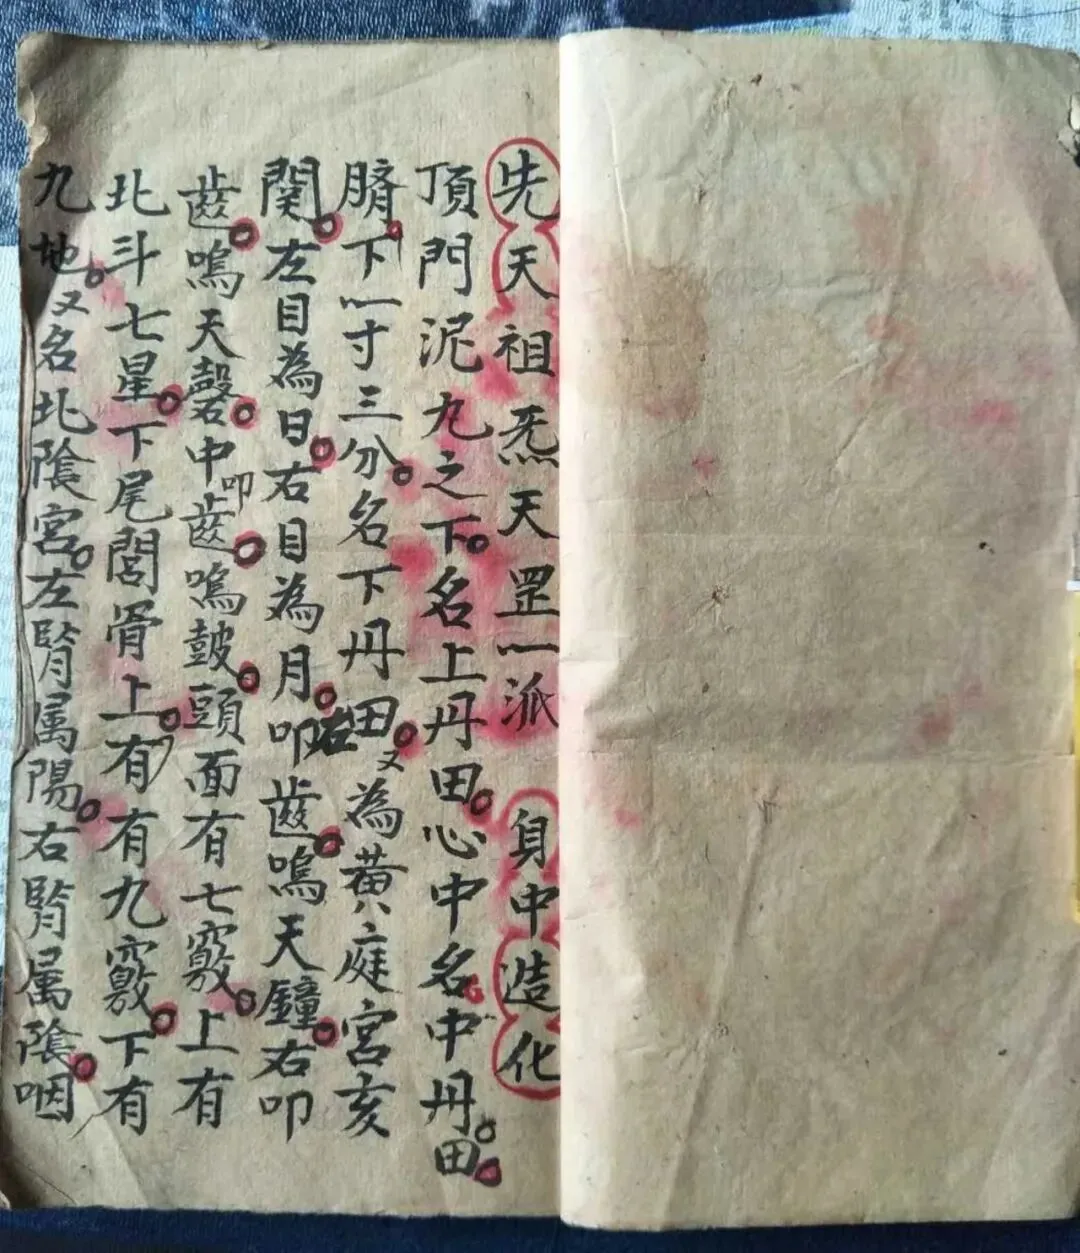 先天祖炁天罡一派 身中造化
頂門泥九之下。名上丹田。心中名。中丹田。
臍。下一寸三分。名下丹田。又為黃庭宮亥
関。左目為日。右目為月。叩右齒。鳴天鐘。右叩
齒。鳴天磬。中叩齒。鳴鼓。頭面有七竅。上有
北斗七星。下尾閭骨上。有有九竅。下有
九地。又名北陰宮。左腎属陽。右腎属陰。咽